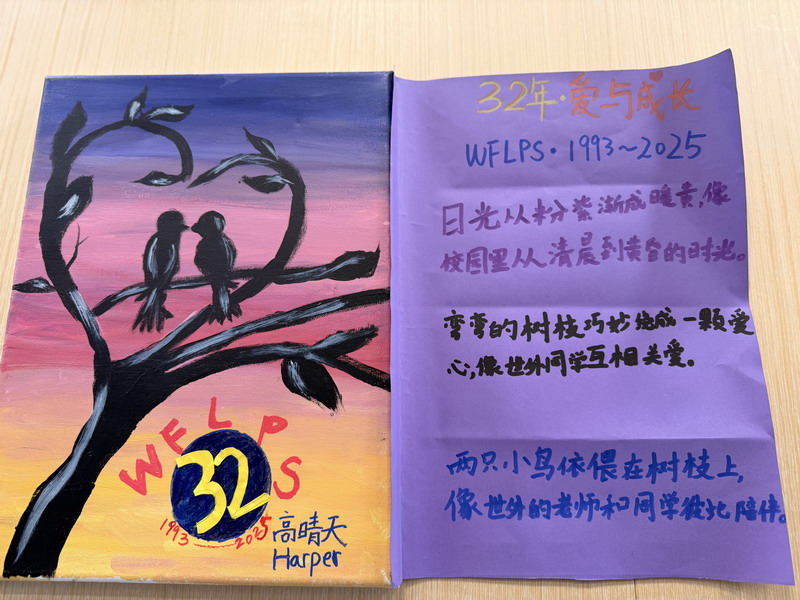 WFLPS
32
1993 2025
高晴天
Harper
32年·爱与成长
WFLPS·1993~2025
日光从粉紫渐成暖黄,像
校园里从清晨到黄昏的时光。
弯弯的树枝巧妙绕成一颗爱
心,像世外同学互相关爱。
两只小鸟依偎在树枝上,
像世外的老师和同学彼此陪伴。